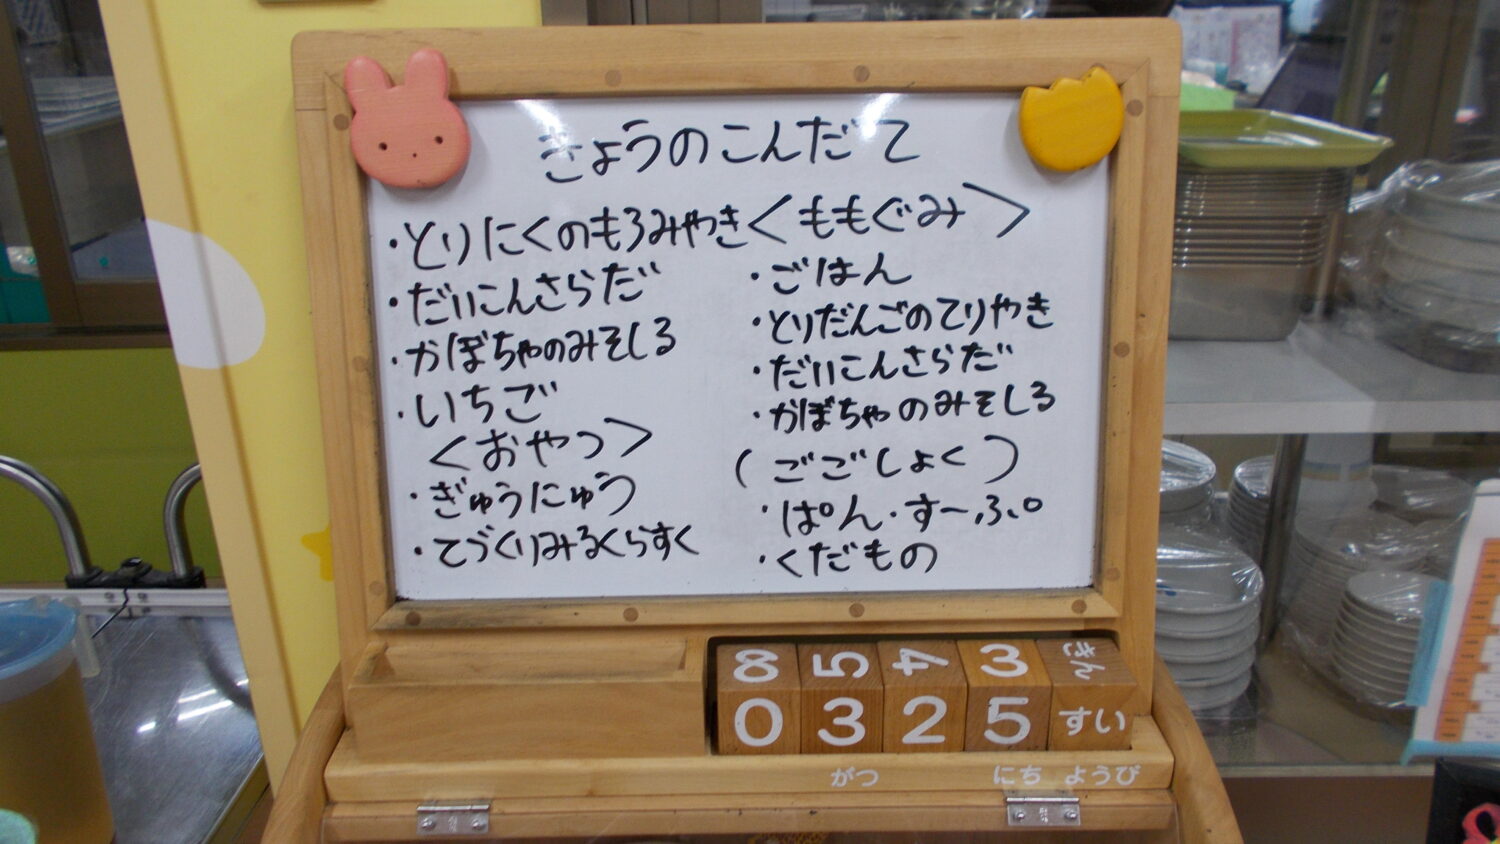 きょうのこんだて
・とりにくのもろみやき
・だいこんさらだ
・かぼちゃのみそしる
・いちご
＜おやつ＞
・ぎゅうにゅう
・てづくりみるくらすく
＜ももぐみ＞
・ごはん
・とりだんごのてりやき
・だいこんさらだ
・かぼちゃのみそしる
(ごごしょく)
・ぱん・すーぷ
・くだもの
8 5 4 3 きん
0 3 2 5 すい
がつ にち ようび